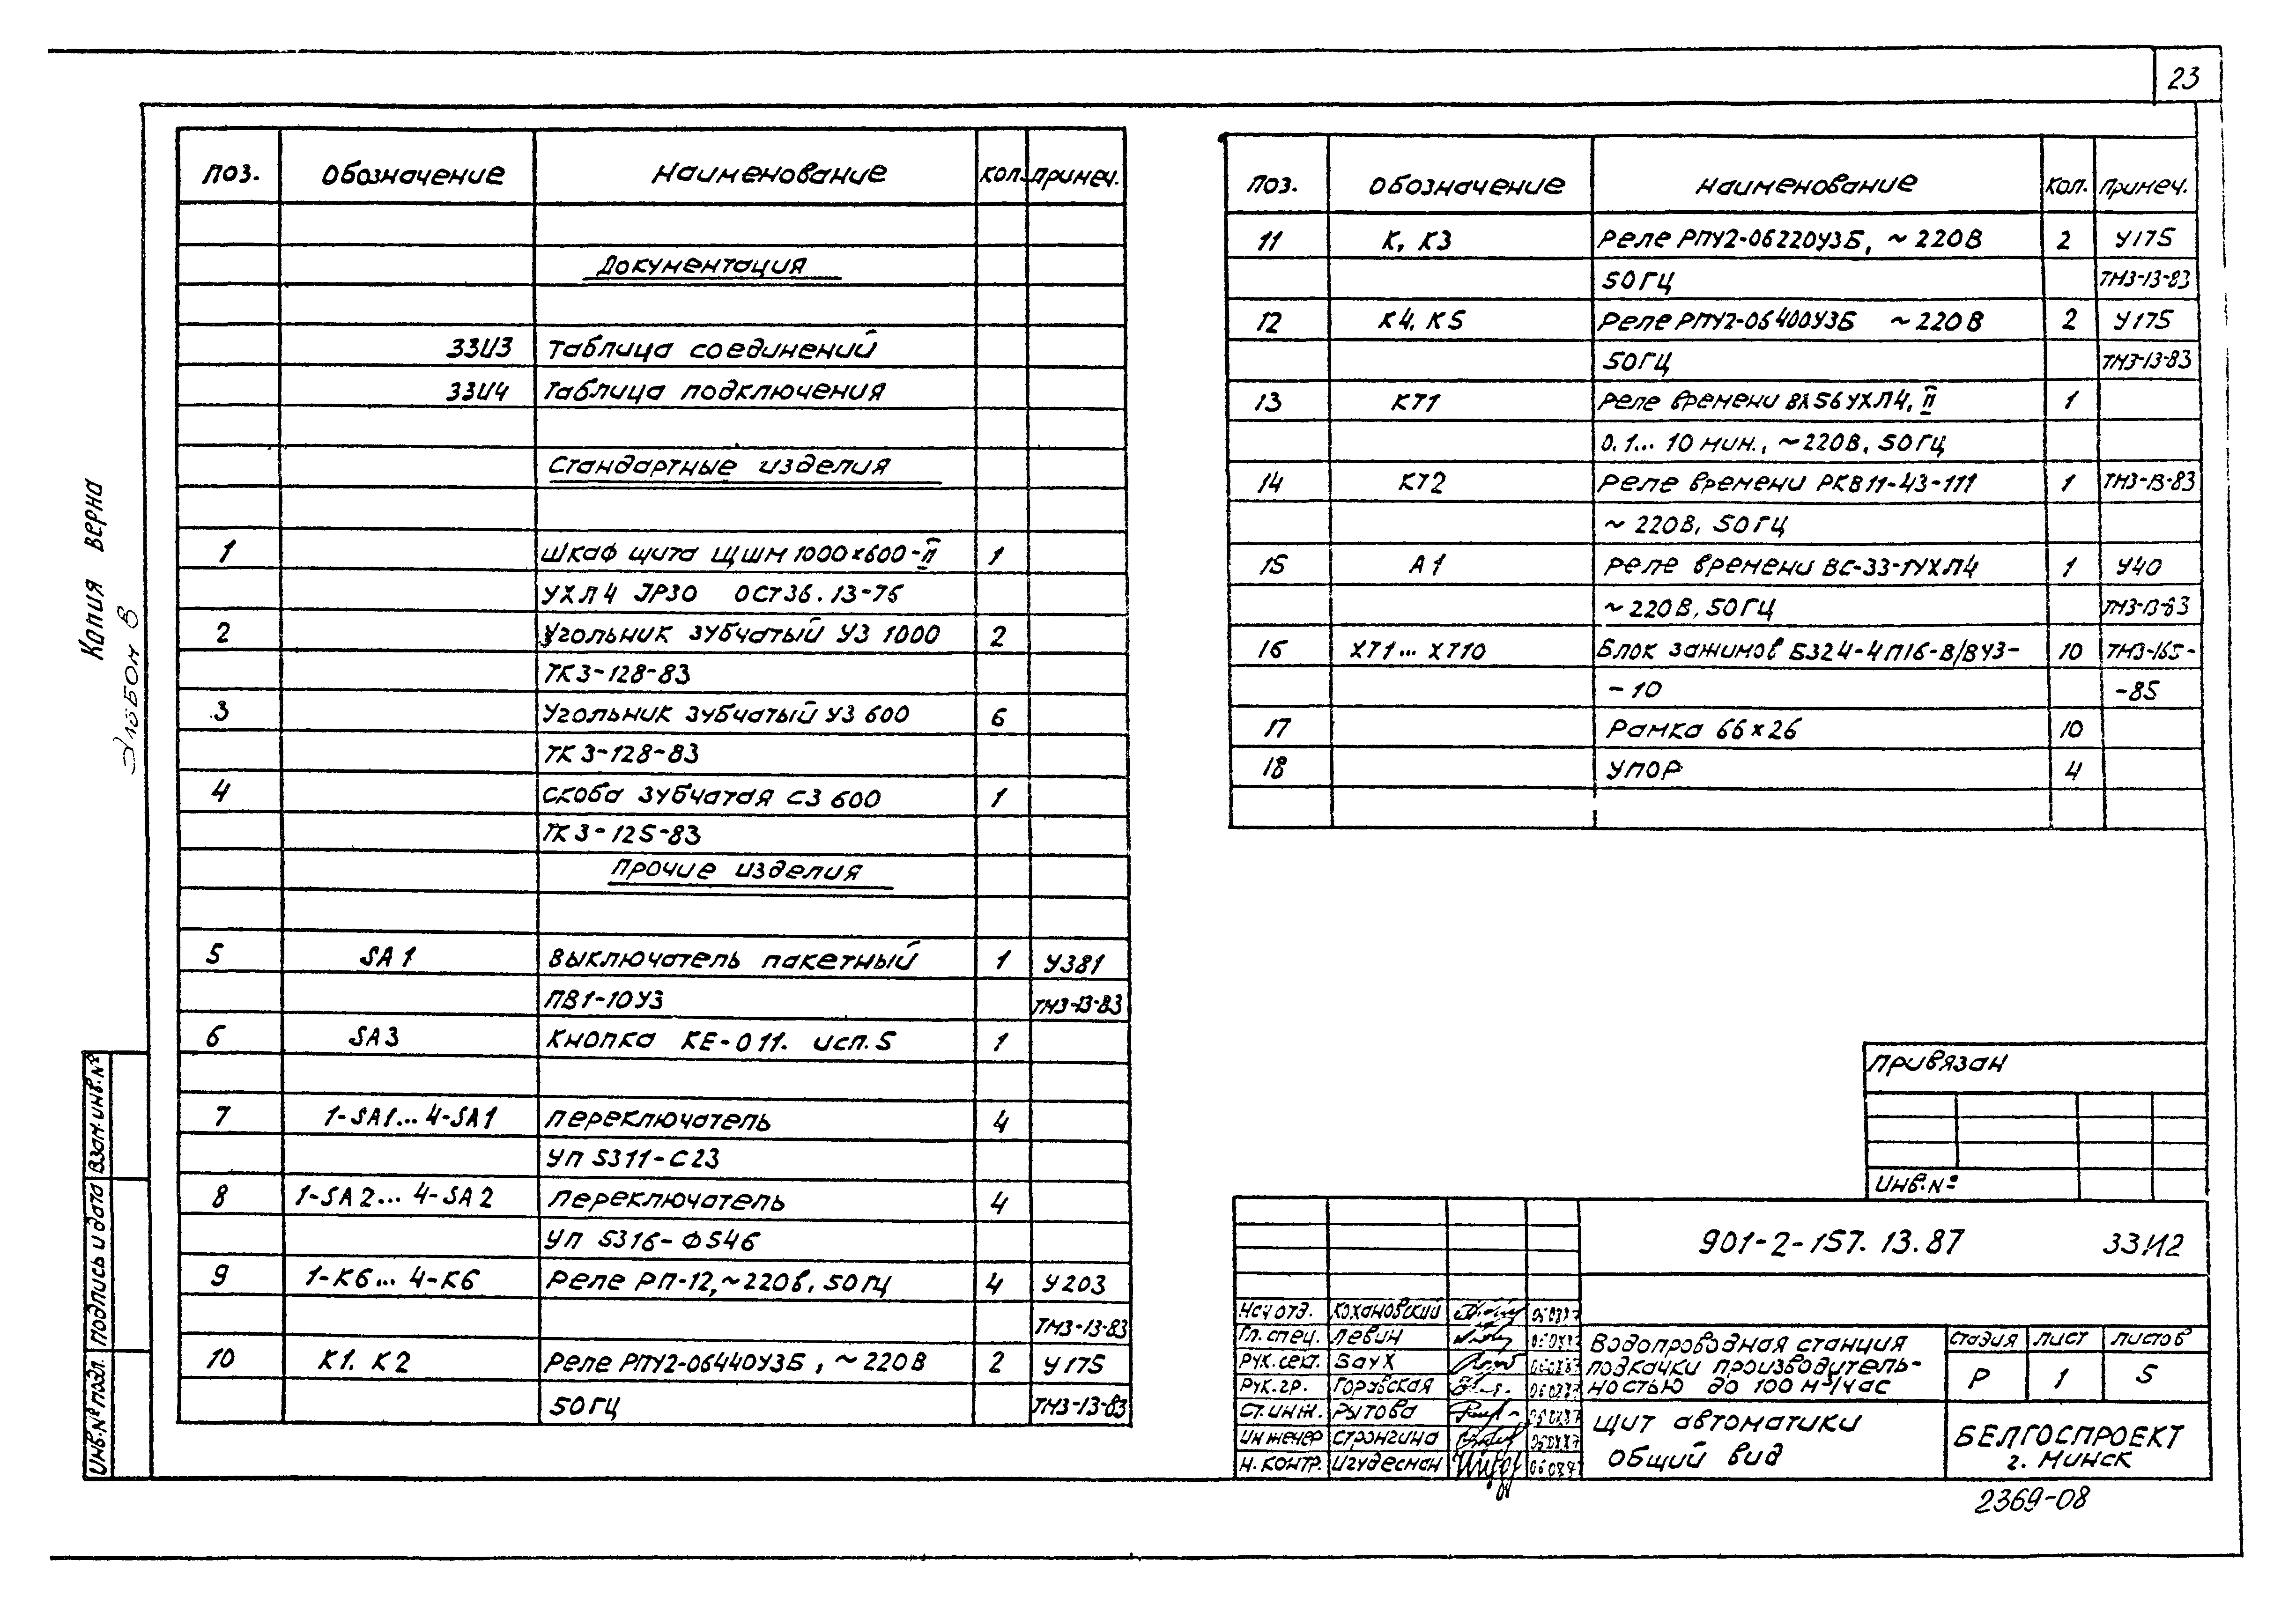 23
Поз. Обозначение Наименование Кол. Примеч.
Документация
ЭЗИ3 Таблица соединений
ЭЗИ4 Таблица подключения
Стандартные изделия
1 Шкаф щита ЩШМ 1000х600-II 1
УХЛ4 JP30 ОСТ36.13-76
2 Угольник зубчатый УЗ 1000 2
ТК3-128-83
3 Угольник зубчатый УЗ 600 6
ТК3-128-83
4 Скоба зубчатая СЗ 600 1
ТК3-125-83
Прочие изделия
5 SA1 Выключатель пакетный 1 У381
ПВ1-10У3 ТМ3-13-83
6 SA3 Кнопка КЕ-011. исп.5 1
7 1-SA1... 4-SA1 Переключатель 4
УП 5311-С23
8 1-SA2... 4-SA2 Переключатель 4
УП 5316-Ф546
9 1-К6... 4-К6 Реле РП-12,~220в, 50Гц 4 У203
ТМ3-13-83
10 К1. К2 Реле РПУ2-06440У3Б, ~220В 2 У175
50ГЦ ТМ3-13-83
Поз. Обозначение Наименование Кол. Примеч.
11 К, К3 Реле РПУ2-06220У3Б, ~220В 2 У175
50ГЦ ТМ3-13-83
12 К4, К5 Реле РПУ2-06400У3Б ~220В 2 У175
50ГЦ ТМ3-13-83
13 КТ1 Реле времени ВЛ56УХЛ4, II 1
0.1... 10 мин., ~220В, 50ГЦ
14 КТ2 Реле времени РКВ11-43-111 1 ТМ3-13-83
~220В, 50ГЦ
15 А1 Реле времени ВС-33-1УХЛ4 1 У40
~220В, 50ГЦ ТМ3-13-83
16 ХТ1... ХТ10 Блок зажимов Б324-4П16-В/ВУ3- 10 ТМ3-165-
-10 -85
17 Рамка 66х26 10
18 УПОР 4
Копия верна
Альбом 8
Взам.инв.№
Подпись и дата
Инв.№ подл.
Привязан
Инв.№
901-2-157.13.87 ЭЗИ2
Нач отд. Кохановский
Гл. спец. Левин
Рук.сект. Баух
Рук.гр. Горовская
Ст.инж. Рытова
Инженер Стронгина
Н.контр. Игудесман
Водопроводная станция
подкачки производитель-
ностью до 100 м³/час
Стадия Лист Листов
Р 1 5
Щит автоматики
Общий вид
БЕЛГОСПРОЕКТ
г. Минск
2369-08